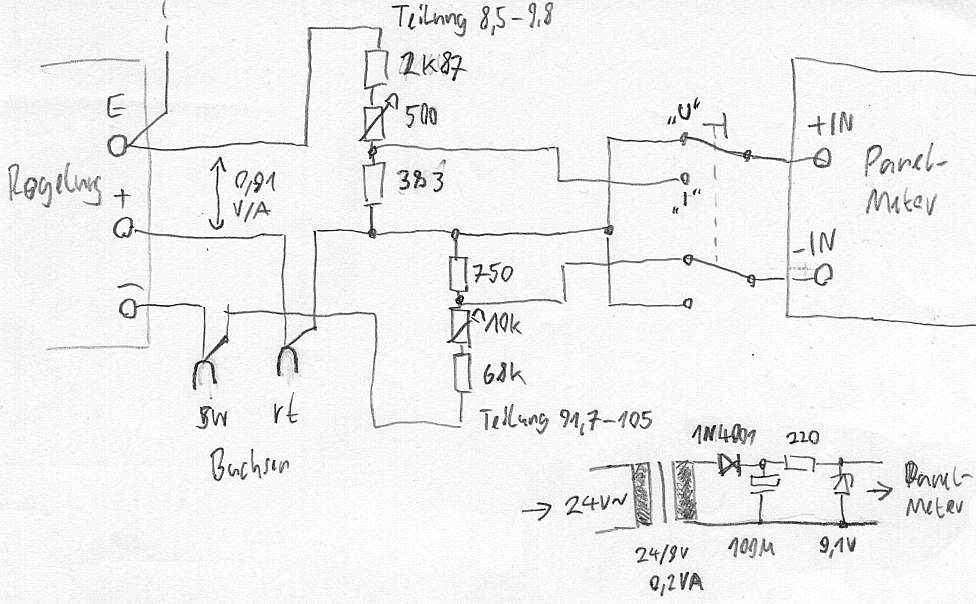 Teilung 8,5-9,8
2K87
500
383
E
Regelung
+
0,91
V/A
−
sw
rt
Buchsen
750
10k
68k
Teilung 91,7-105
„U“
„I“
+IN
-IN
Panel-
Meter
24V~
24/9V
0,2VA
1N4001
220
100µ
9,1V
Panel-
Meter